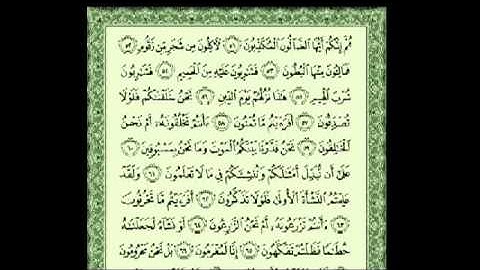 ثُمَّ إِنَّكُمْ أَيُّهَا الضَّالُّونَ الْمُكَذِّبُونَ ٥١ لَآكِلُونَ مِن شَجَرٍ مِّن زَقُّومٍ ٥٢
فَمَالِئُونَ مِنْهَا الْبُطُونَ ٥٣ فَشَارِبُونَ عَلَيْهِ مِنَ الْحَمِيمِ ٥٤ فَشَارِبُونَ
شُرْبَ الْهِيمِ ٥٥ هَٰذَا نُزُلُهُمْ يَوْمَ الدِّينِ ٥٦ نَحْنُ خَلَقْنَاكُمْ فَلَوْلَا
تُصَدِّقُونَ ٥٧ أَفَرَأَيْتُم مَّا تُمْنُونَ ٥٨ ءَأَنتُمْ تَخْلُقُونَهُ أَمْ نَحْنُ
الْخَالِقُونَ ٥٩ نَحْنُ قَدَّرْنَا بَيْنَكُمُ الْمَوْتَ وَمَا نَحْنُ بِمَسْبُوقِينَ ٦٠
عَلَىٰ أَن نُّبَدِّلَ أَمْثَالَكُمْ وَنُنشِئَكُمْ فِي مَا لَا تَعْلَمُونَ ٦١ وَلَقَدْ
عَلِمْتُمُ النَّشْأَةَ الْأُولَىٰ فَلَوْلَا تَذَكَّرُونَ ٦٢ أَفَرَأَيْتُم مَّا تَحْرُثُونَ
٦٣ ءَأَنتُمْ تَزْرَعُونَهُ أَمْ نَحْنُ الزَّارِعُونَ ٦٤ لَوْ نَشَاءُ لَجَعَلْنَاهُ
حُطَامًا فَظَلْتُمْ تَفَكَّهُونَ ٦٥ إِنَّا لَمُغْرَمُونَ ٦٦ بَلْ نَحْنُ مَحْرُومُونَ